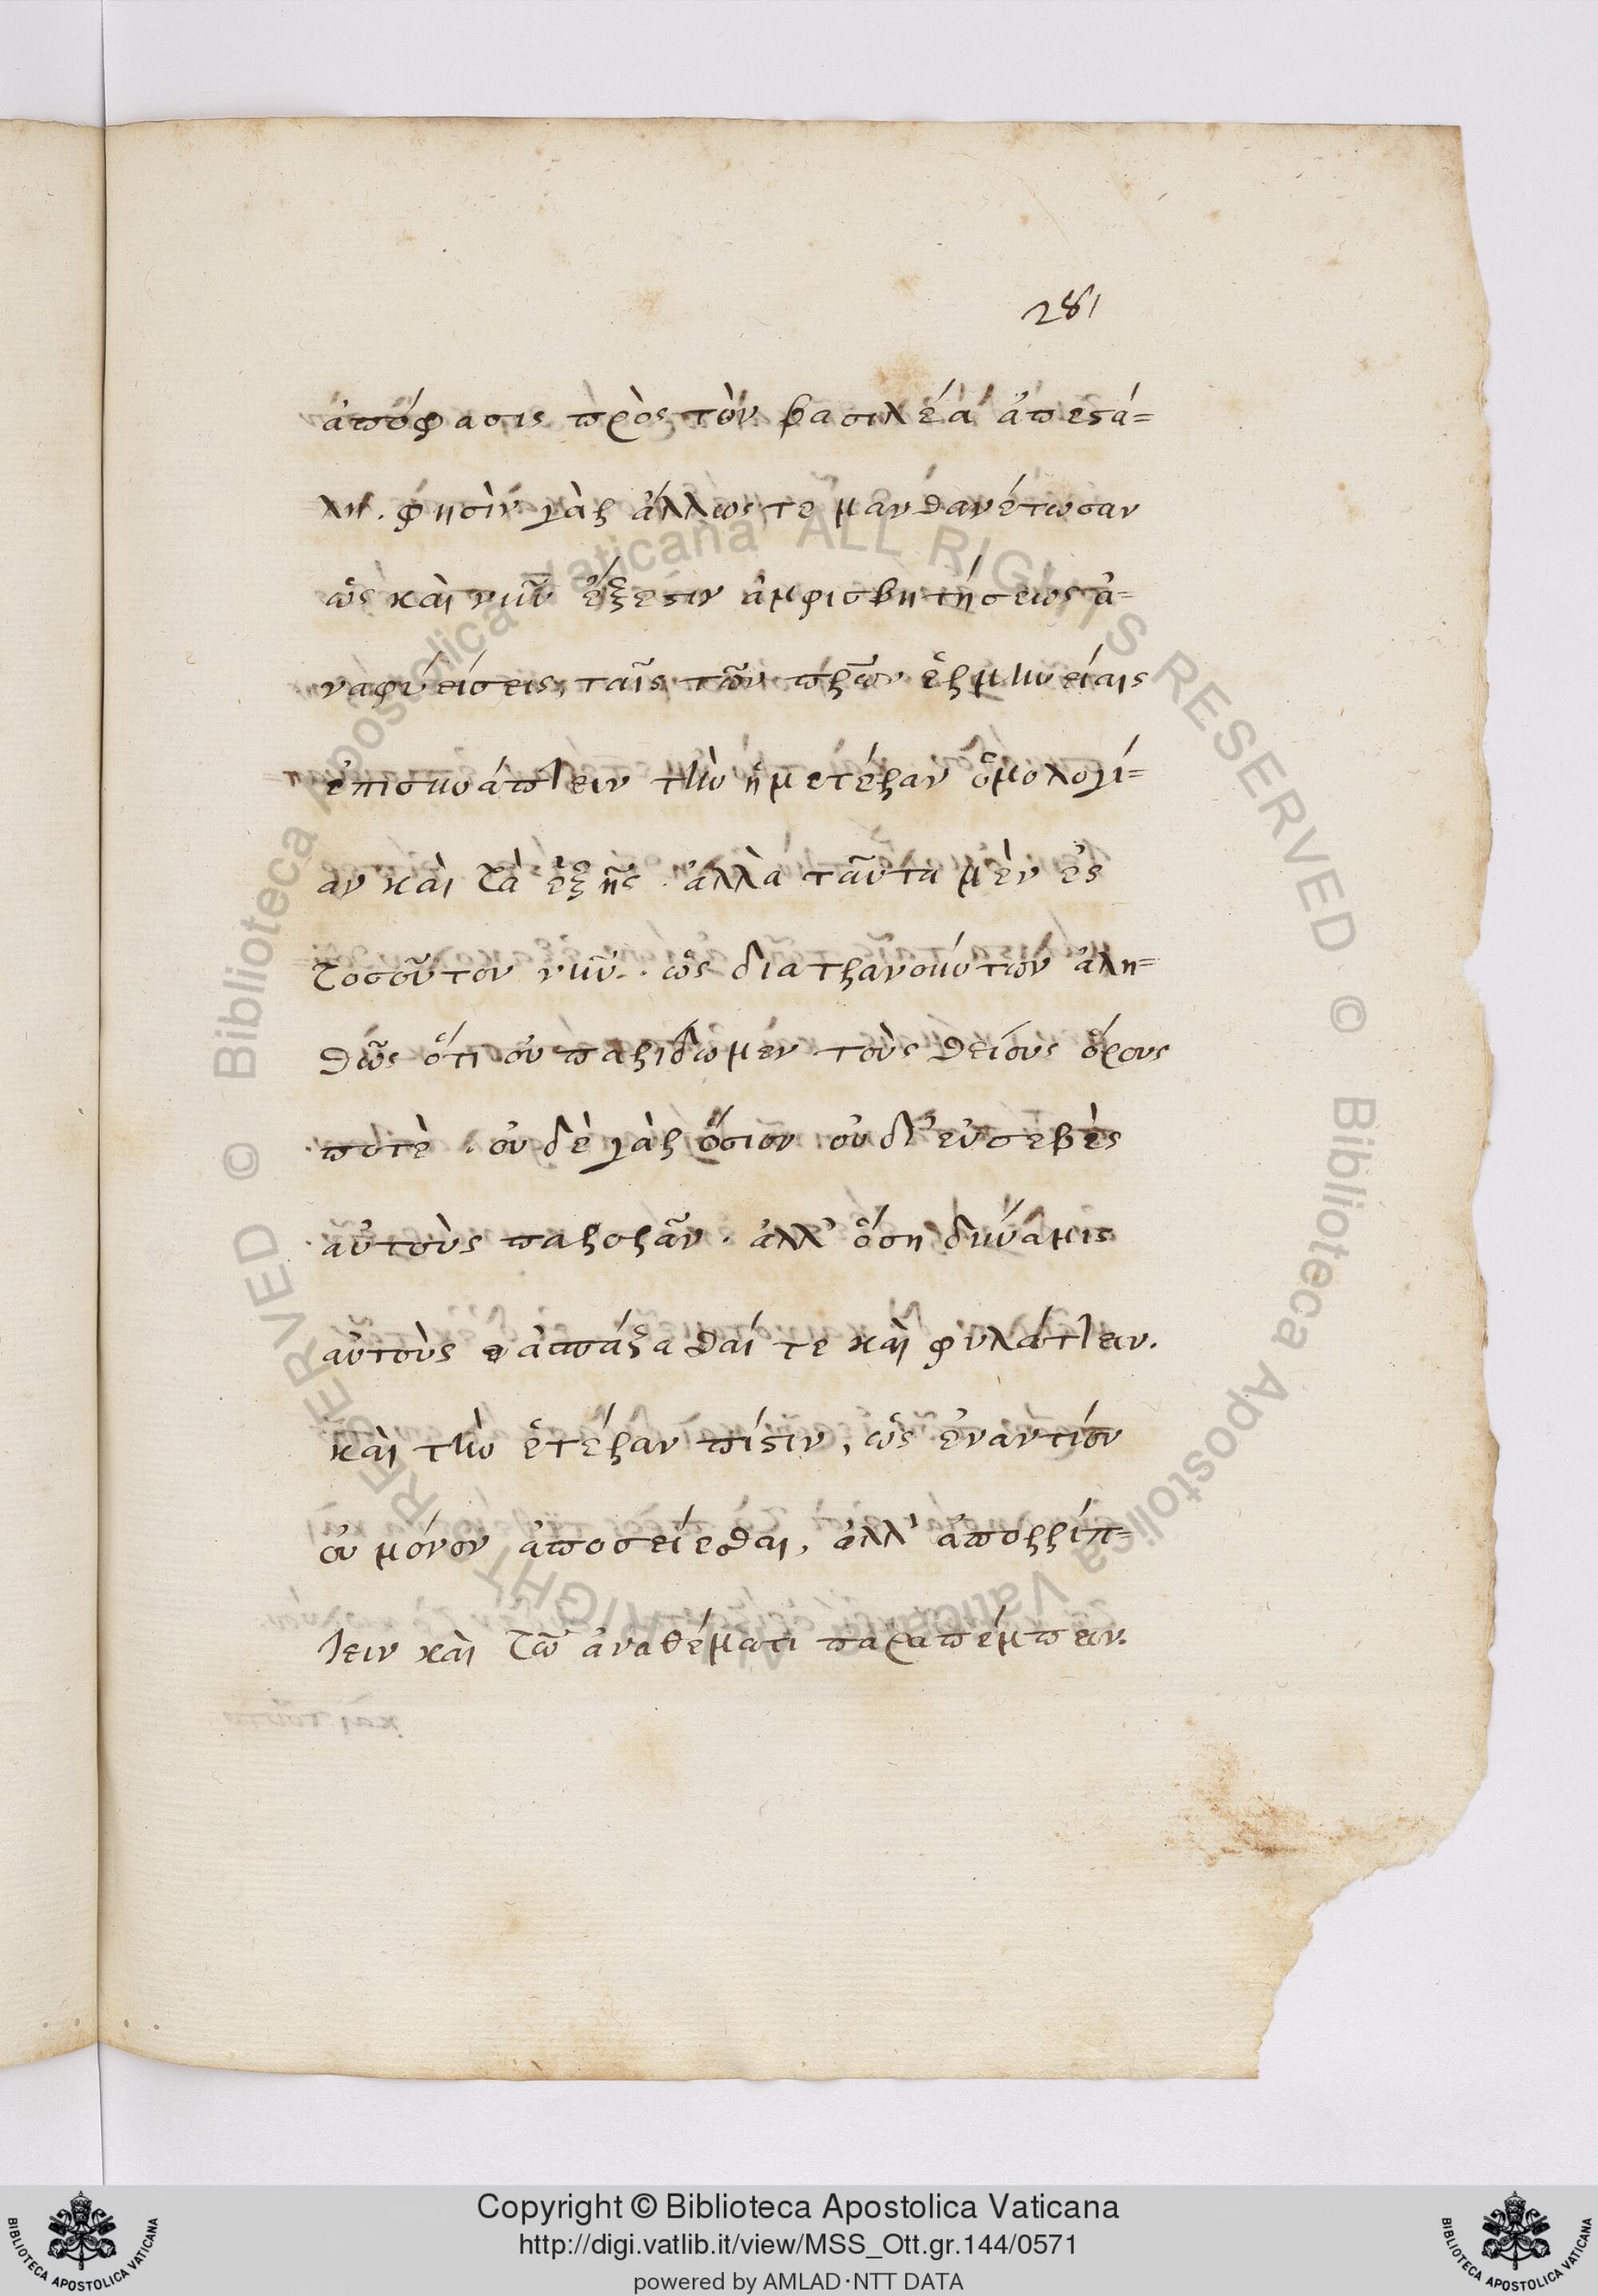 281
ἀπόφασις πρὸς τὸν βασιλέα ἀπεστά=
λη. φησὶν γὰρ ἄλλως τε μανθανέτωσαν
ὡς καὶ νῦν ἔξεστιν ἀμφισβητήσεως ἀ=
ναφυείσεις, ταῖς τῶν πρῶν ἑρμηνείαις
τὴν ἡμετέραν ὁμολογί=
αν καὶ τὰ ἑξῆς. ἀλλὰ ταῦτα μὲν ἐς
τοσοῦτον νῦν. ὡς διατρανούντων ἀλη=
θῶς ὅτι οὐ παρίδωμεν τοὺς θείους ὅρους
ποτὲ. οὐδὲ γὰρ ὅσιον οὐδ' εὐσεβὲς
αὐτοὺς παρορᾶν. ἀλλ' ὅση δύναμις
αὐτοὺς τε καὶ φυλάττειν.
καὶ τὴν ἑτέραν πίστιν, ὡς ἐναντίον
οὐ μόνον ἀποσείεσθαι, ἀλλ' ἀπορρίπ=
τειν καὶ τῶ ἀναθέματι παραπέμπειν.
Copyright © Biblioteca Apostolica Vaticana
http://digi.vatlib.it/view/MSS_Ott.gr.144/0571
powered by AMLAD·NTT DATA
BIBLIOTECA APOSTOLICA VATICANA
BIBLIOTECA APOSTOLICA VATICANA
© Biblioteca Apostolica Vaticana ALL RIGHTS RESERVED © Biblioteca Apostolica Vaticana ALL RIGHTS RESERVED